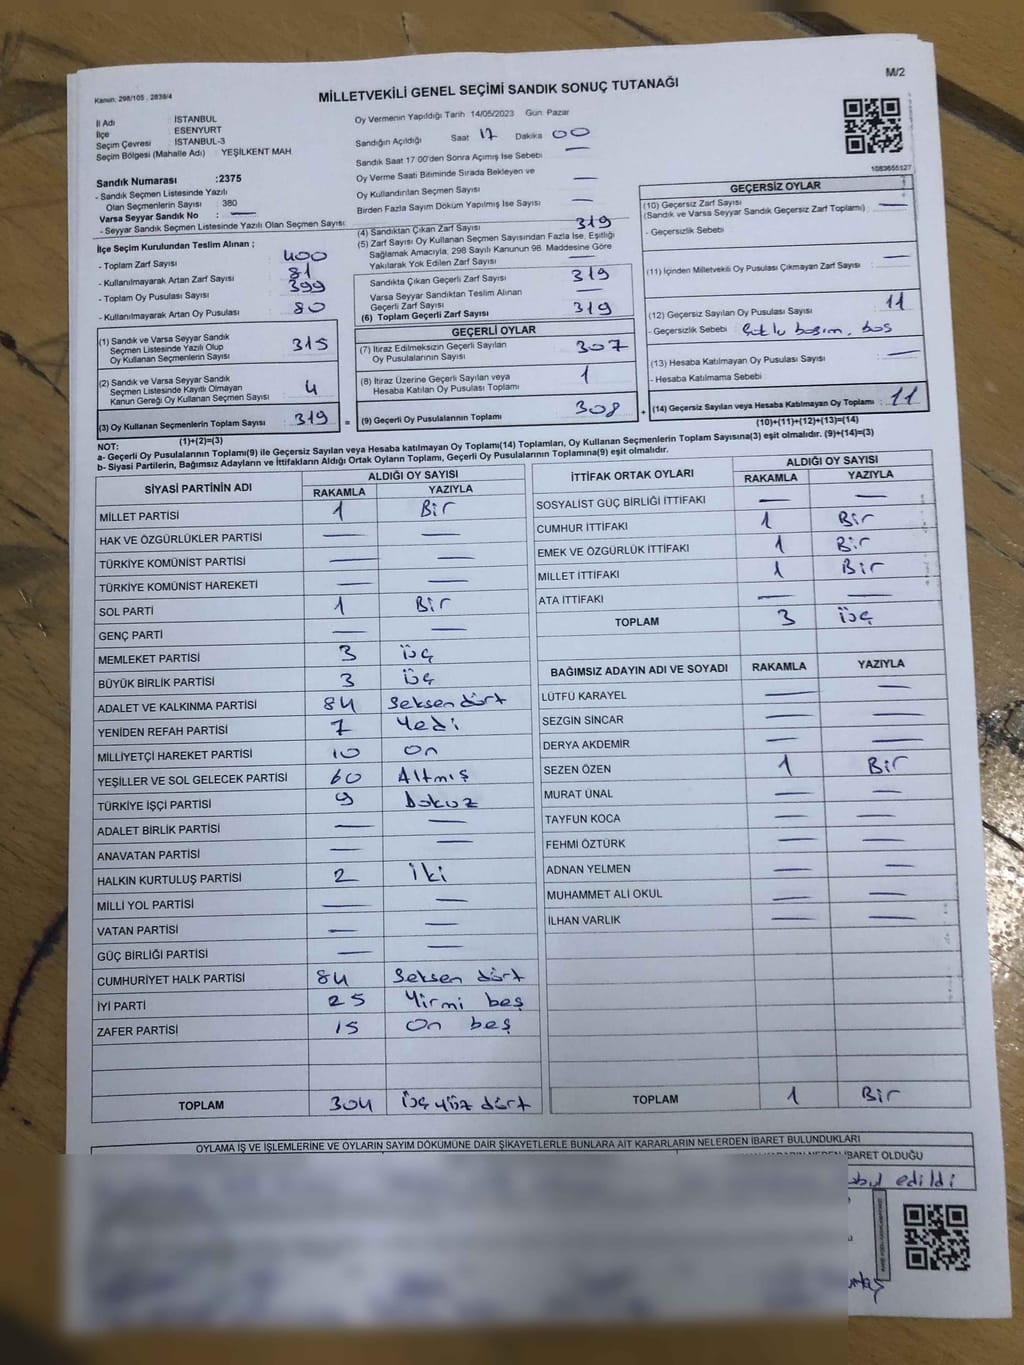 M/2
Kanun: 298/105 , 2839/4
MİLLETVEKİLİ GENEL SEÇİMİ SANDIK SONUÇ TUTANAĞI
İl Adı : İSTANBUL
İlçe : ESENYURT
Seçim Çevresi : İSTANBUL-3
Seçim Bölgesi (Mahalle Adı) : YEŞİLKENT MAH
Oy Vermenin Yapıldığı Tarih 14/05/2023 Gün: Pazar
Sandığın Açıldığı Saat 17 Dakika 00
Sandık Saat 17:00'den Sonra Açımış İse Sebebi —
Oy Verme Saati Bitiminde Sırada Bekleyen ve
Oy Kullandırılan Seçmen Sayısı —
Birden Fazla Sayım Döküm Yapılmış İse Sayısı —
1083655127
Sandık Numarası :2375
- Sandık Seçmen Listesinde Yazılı
Olan Seçmenlerin Sayısı : 380
Varsa Seyyar Sandık No : —
- Seyyar Sandık Seçmen Listesinde Yazılı Olan Seçmen Sayısı:
İlçe Seçim Kurulundan Teslim Alınan ;
- Toplam Zarf Sayısı : 400
- Kullanılmayarak Artan Zarf Sayısı : 81
- Toplam Oy Pusulası Sayısı : 399
- Kullanılmayarak Artan Oy Pusulası : 80
(1) Sandık ve Varsa Seyyar Sandık
Seçmen Listesinde Yazılı Olup
Oy Kullanan Seçmenlerin Sayısı : 315
(2) Sandık ve Varsa Seyyar Sandık
Seçmen Listesinde Kayıtlı Olmayan
Kanun Gereği Oy Kullanan Seçmen Sayısı : 4
(3) Oy Kullanan Seçmenlerin Toplam Sayısı : 319
(1)+(2)=(3)
(4) Sandıktan Çıkan Zarf Sayısı 319
(5) Zarf Sayısı Oy Kullanan Seçmen Sayısından Fazla İse, Eşitliği
Sağlamak Amacıyla, 298 Sayılı Kanunun 98. Maddesine Göre
Yakılarak Yok Edilen Zarf Sayısı —
Sandıkta Çıkan Geçerli Zarf Sayısı 319
Varsa Seyyar Sandıktan Teslim Alınan
Geçerli Zarf Sayısı —
(6) Toplam Geçerli Zarf Sayısı 319
GEÇERLİ OYLAR
(7) İtiraz Edilmeksizin Geçerli Sayılan
Oy Pusulalarının Sayısı : 307
(8) İtiraz Üzerine Geçerli Sayılan veya
Hesaba Katılan Oy Pusulası Toplamı : 1
= (9) Geçerli Oy Pusulalarının Toplamı : 308
GEÇERSİZ OYLAR
(10) Geçersiz Zarf Sayısı
(Sandık ve Varsa Seyyar Sandık Geçersiz Zarf Toplamı) : —
- Geçersizlik Sebebi :
(11) İçinden Milletvekili Oy Pusulası Çıkmayan Zarf Sayısı : —
(12) Geçersiz Sayılan Oy Pusulası Sayısı : 11
- Geçersizlik Sebebi : basım, boş
(13) Hesaba Katılmayan Oy Pusulası Sayısı : —
- Hesaba Katılmama Sebebi :
+ (14) Geçersiz Sayılan veya Hesaba Katılmayan Oy Toplamı : 11
(10)+(11)+(12)+(13)=(14)
NOT:
a- Geçerli Oy Pusulalarının Toplamı(9) ile Geçersiz Sayılan veya Hesaba katılmayan Oy Toplamı(14) Toplamları, Oy Kullanan Seçmenlerin Toplam Sayısına(3) eşit olmalıdır. (9)+(14)=(3)
b- Siyasi Partilerin, Bağımsız Adayların ve İttifakların Aldığı Ortak Oyların Toplamı, Geçerli Oy Pusulalarının Toplamına(9) eşit olmalıdır.
SİYASİ PARTİNİN ADI ALDIĞI OY SAYISI
RAKAMLA YAZIYLA
MİLLET PARTİSİ 1 Bir
HAK VE ÖZGÜRLÜKLER PARTİSİ — —
TÜRKİYE KOMÜNİST PARTİSİ — —
TÜRKİYE KOMÜNİST HAREKETİ — —
SOL PARTİ 1 Bir
GENÇ PARTİ — —
MEMLEKET PARTİSİ 3 üç
BÜYÜK BİRLİK PARTİSİ 3 üç
ADALET VE KALKINMA PARTİSİ 84 Seksen dört
YENİDEN REFAH PARTİSİ 7 Yedi
MİLLİYETÇİ HAREKET PARTİSİ 10 On
YEŞİLLER VE SOL GELECEK PARTİSİ 60 Altmış
TÜRKİYE İŞÇİ PARTİSİ 9 Dokuz
ADALET BİRLİK PARTİSİ — —
ANAVATAN PARTİSİ — —
HALKIN KURTULUŞ PARTİSİ 2 iki
MİLLİ YOL PARTİSİ — —
VATAN PARTİSİ — —
GÜÇ BİRLİĞİ PARTİSİ — —
CUMHURİYET HALK PARTİSİ 84 Seksen dört
İYİ PARTİ 25 Yirmi beş
ZAFER PARTİSİ 15 On beş
TOPLAM 304 üç yüz dört
İTTİFAK ORTAK OYLARI ALDIĞI OY SAYISI
RAKAMLA YAZIYLA
SOSYALİST GÜÇ BİRLİĞİ İTTİFAKI — —
CUMHUR İTTİFAKI 1 Bir
EMEK VE ÖZGÜRLÜK İTTİFAKI 1 Bir
MİLLET İTTİFAKI 1 Bir
ATA İTTİFAKI — —
TOPLAM 3 üç
BAĞIMSIZ ADAYIN ADI VE SOYADI RAKAMLA YAZIYLA
LÜTFÜ KARAYEL — —
SEZGİN SİNCAR — —
DERYA AKDEMİR — —
SEZEN ÖZEN 1 Bir
MURAT ÜNAL — —
TAYFUN KOCA — —
FEHMİ ÖZTÜRK — —
ADNAN YELMEN — —
MUHAMMET ALİ OKUL — —
İLHAN VARLIK — —
TOPLAM 1 Bir
OYLAMA İŞ VE İŞLEMLERİNE VE OYLARIN SAYIM DÖKÜMÜNE DAİR ŞİKAYETLERLE BUNLARA AİT KARARLARIN NELERDEN İBARET BULUNDUKLARI
İBARET OLDUĞU
edildi